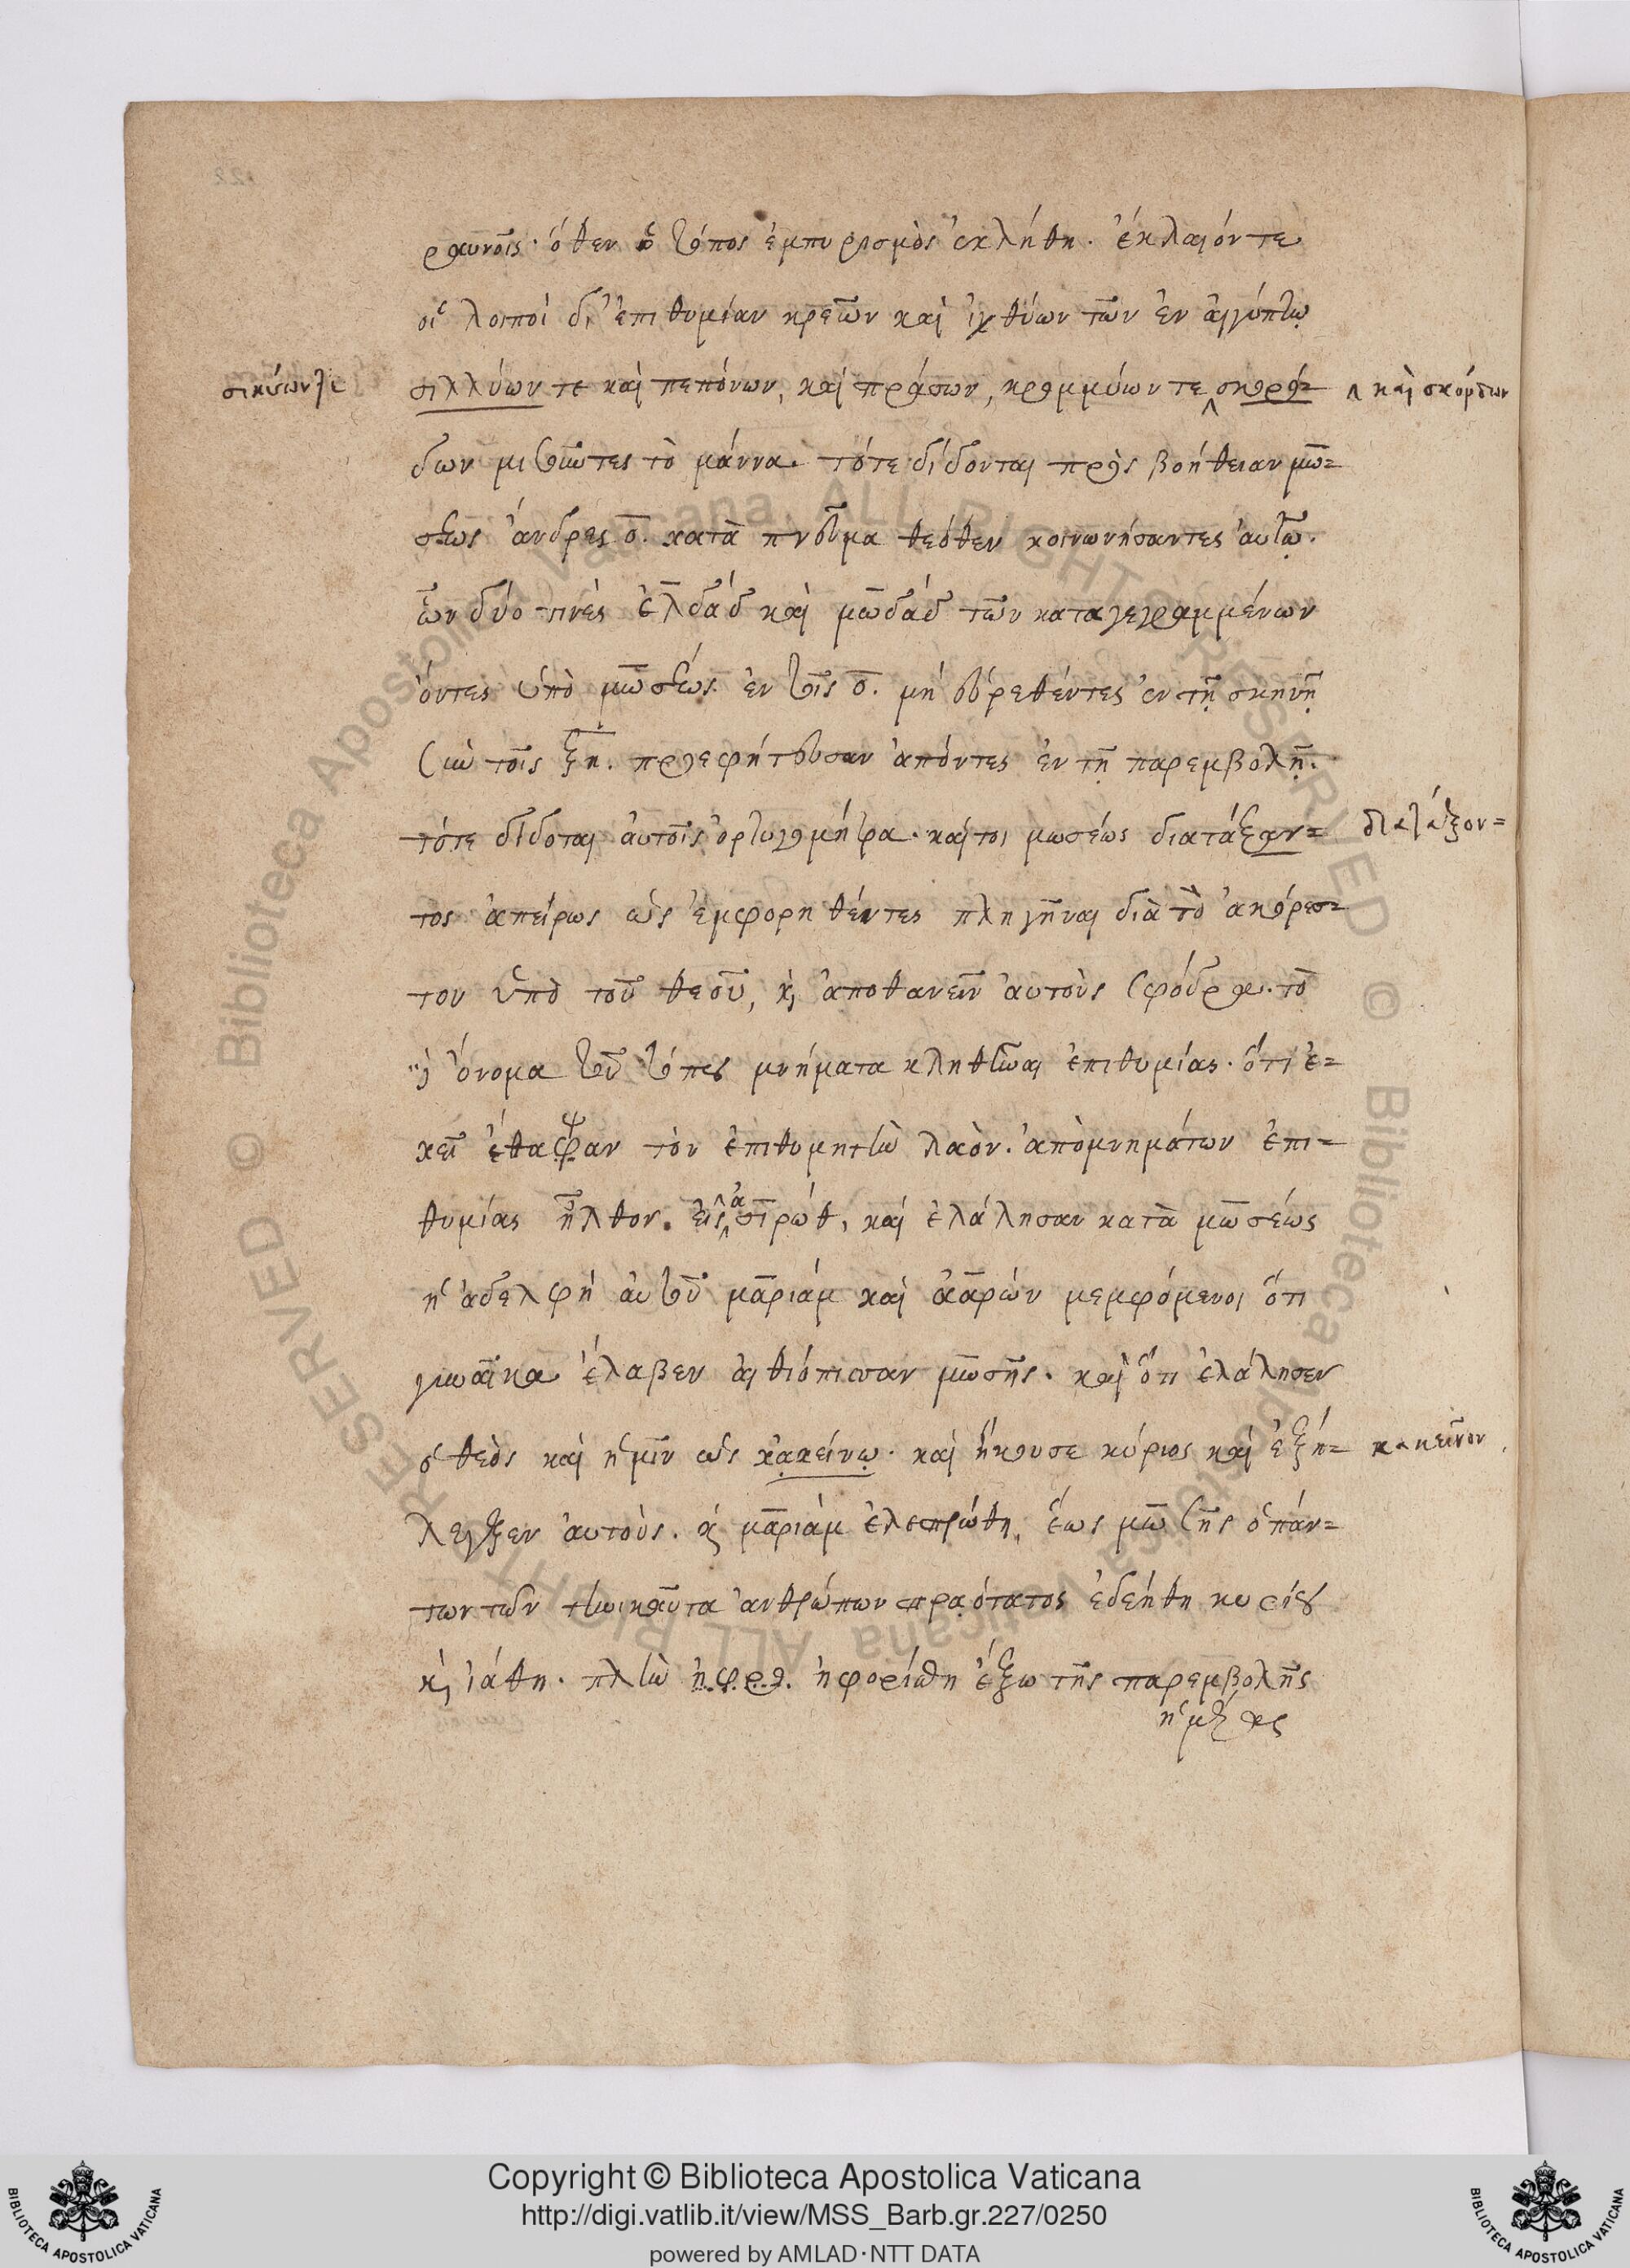 ραυνοῖς· ὅθεν ὁ τόπος ἐμπυρισμὸς ἐκλήθη. ἔκλαιόν τε
οἱ λοιποὶ δι' ἐπιθυμίαν κρεῶν καὶ ἰχθύων τῶν ἐν αἰγύπτῳ
σικύων τε
σιλλύων τε καὶ πεπόνων, καὶ πράσων, κρομμύων τε ‸ σκορό=
‸ καὶ σκόρδων
δων μισοῦντες τὸ μάννα. τότε δίδονται πρὸς βοήθειαν μω=
σέως ἄνδρες ο. κατὰ πνεῦμα θεόθεν κοινωνήσαντες αὐτῷ.
ὧν δύο τινὲς ἐλδὰδ καὶ μωδὰδ τῶν καταγεγραμμένων
ὄντες ὑπὸ μωσέως ἐν τοῖς ο. μὴ εὑρεθέντες ἐν τῇ σκηνῇ
σὺν τοῖς ξη. προεφήτευσαν ἀπόντες ἐν τῇ παρεμβολῇ.
τότε δίδοται αὐτοῖς ὀρτυγομήτρα· καίτοι μωσέως διατάξαν=
διατάξον=
τος ἀπείρως ὡς ἐμφορηθέντες πληγῆναι διὰ τὸ ἀκόρεσ=
τον ὑπὸ τοῦ θεοῦ, κ αποθανεῖν αὐτοὺς σφόδρα. τὸ
ὄνομα τοῦ τόπου μνήματα κληθῆναι ἐπιθυμίας. ὅτι ἐ=
κεῖ ἔθαφαν τὸν ἐπιθυμητὴν λαόν. ἀπὸ μνημάτων ἐπι=
θυμίας ἦλθον. εἰς ἀσιρώθ, καὶ ἐλάλησαν κατὰ μωσέως
ἡ ἀδελφὴ αὐτοῦ μαριάμ καὶ ἀαρών μεμφόμενοι ὅτι
γυναῖκα ἔλαβεν αἰθιόπισσαν μωσῆς. καὶ ὅτι ἐλάλησεν
ὁ θεὸς καὶ ἡμῖν ὡς κακείνῳ. καὶ ἤκουσε κύριος καὶ ἐξή=
κακεῖνον
λεγξεν αὐτούς. κ μαριάμ ἐλεπρώθη, ἕως μωσῆς ὁ πάν=
των τῶν τηνικαῦτα ἀνθρώπων πραότατος ἐδεήθη κυρίου
κ ἰάθη. πλὴν ἠφρθ. ἠφορίσθη ἔξω τῆς παρεμβολῆς
ἡμέρας
Copyright © Biblioteca Apostolica Vaticana
http://digi.vatlib.it/view/MSS_Barb.gr.227/0250
powered by AMLAD·NTT DATA